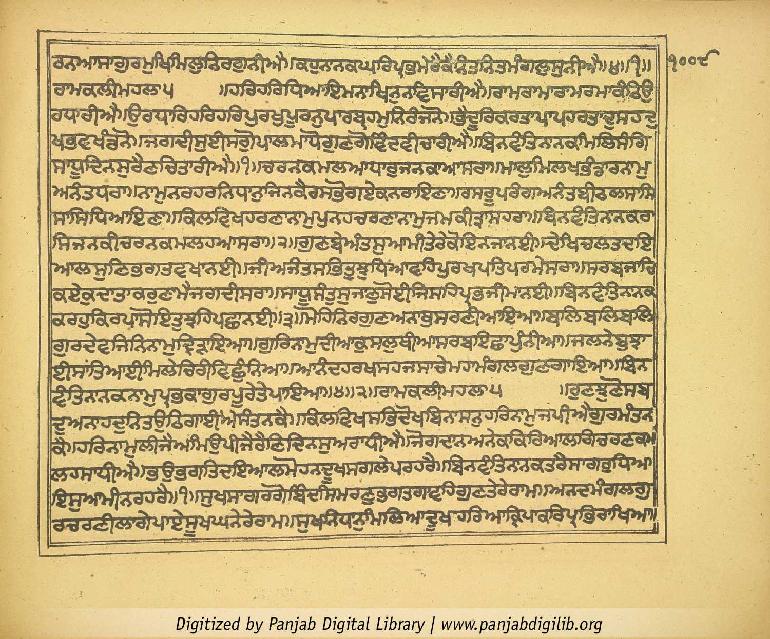 ਰਨਆਸਾਗੁਰਮੁਖਿਮਿਲੁਨਿਰਗੁਨੀਐ॥ਕਹੁਨਾਨਕਘਰਿਪ੍ਰਭਮੇਰੇਕੈਨਿਤਨਿਤਮੰਗਲੁਸੁਨੀਐ॥੪॥੧॥
੧੦੦੯
ਰਾਮਕਲੀਮਹਲਾ੫ ॥ਹਰਿਹਰਿਧਿਆਇਮਨਾਖਿਨੁਨਵਿਸਾਰੀਐ॥ਰਾਮਾਰਾਮਰਾਮਾਰਾਮਾਕੰਠਿਉ
ਰਧਾਰੀਐ॥ਉਰਧਾਰਿਹਰਿਹਰਿਪੁਰਖੁਪੂਰਨੁਪਾਰਬ੍ਰਹਮੁਨਿਰੰਜਨੋ॥ਭੈਦੂਰਿਕਰਤਾਪਾਪਹਰਤਾਦੁਸਹਦੁ
ਖਭਵਖੰਡਨੋ॥ਜਗਦੀਸਈਸਗੋੁਪਾਲਮਾਧੋਗੁਣਗੋਵਿੰਦਵੀਚਾਰੀਐ॥ਬਿਨਵੰਤਿਨਾਨਕਮਿਲਿਸੰਗਿ
ਸਾਧੂਦਿਨਸੁਰੈਣਿਚਿਤਾਰੀਐ॥੧॥ਚਰਨਕਮਲਆਧਾਰੁਜਨਕਾਆਸਰਾ॥ਮਾਲੁਮਿਲਖਭੰਡਾਰਨਾਮੁ
ਅਨੰਤਧਰਾ॥ਨਾਮੁਨਰਹਰਨਿਧਾਨੁਜਿਨਕੈਰਸਭੋਗਏਕਨਰਾਇਣਾ॥ਰਸਰੂਪਰੰਗਅਨੰਤਬੀਠਲਸਾਸਿ
ਸਾਸਿਧਿਆਇਣਾ॥ਕਿਲਵਿਖਹਰਣਾਨਾਮੁਪੁਨਹਚਰਣਾਨਾਮੁਜਮਕੀਤ੍ਰਾਸਹਰਾ॥ਬਿਨਵੰਤਿਨਾਨਕਰਾ
ਸਿਜਨਕੀਚਰਨਕਮਲਹਆਸਰਾ॥੨॥ਗੁਣਬੇਅੰਤਸੁਆਮੀਤੇਰੇਕੋਇਨਜਾਨਈ॥ਦੇਖਿਚਲਤਦਇ
ਆਲਸੁਣਿਭਗਤਵਖਾਨਈ॥ਜੀਅਜੰਤਸਭਿਤੁਝੁਧਿਆਵਹਿਪੁਰਖਪਤਿਪਰਮੇਸਰਾ॥ਸਰਬਜਾਚਿ
ਕਏਕੁਦਾਤਾਕਰੁਣਾਮੈਜਗਦੀਸਰਾ॥ਸਾਧੂਸੰਤੁਸੁਜਾਣੁਸੋਈਜਿਸਹਿਪ੍ਰਭਜੀਮਾਨਈ॥ਬਿਨਵੰਤਿਨਾਨਕ
ਕਰਹੁਕਿਰਪਾਸੋਇਤੁਝਹਿਪਛਾਨਈ॥੩॥ਮੋਹਿਨਿਰਗੁਣਅਨਾਥੁਸਰਣੀਆਇਆ॥ਬਲਿਬਲਿਬਲਿ
ਗੁਰਦੇਵਜਿਨਿਨਾਮੁਦ੍ਰਿੜਾਇਆ॥ਗੁਰਿਨਾਮੁਦੀਆਕੁਸਲੁਥੀਆਸਰਬਇਛਾਪੁੰਨੀਆ॥ਜਲਨੇਬੁਝਾ
ਈਸਾਂਤਿਆਈਮਿਲੇਚਿਰੀਵਿਛੁੰਨਿਆ॥ਆਨੰਦਹਰਖਸਹਜਸਾਚੇਮਹਾਮੰਗਲਗੁਣਗਾਇਆ॥ਬਿਨ
ਵੰਤਿਨਾਨਕਨਾਮੁਪ੍ਰਭਕਾਗੁਰਪੂਰੇਤੇਪਾਇਆ॥੪॥੨॥ਰਾਮਕਲੀਮਹਲਾ੫ ॥ਰੁਣਝੁਣੋਸਬ
ਦੁਅਨਾਹਦੁਨਿਤਉਠਿਗਾਈਐਸੰਤਨਕੈ॥ਕਿਲਵਿਖਸਭਿਦੋਖਬਿਨਾਸਨੁਹਰਿਨਾਮੁਜਪੀਐਗੁਰਮੰਤਨ
ਕੈ॥ਹਰਿਨਾਮੁਲੀਜੈਅਮਿਉਪੀਜੈਰੈਣਿਦਿਨਸੁਅਰਾਧੀਐ॥ਜੋਗਦਾਨਅਨੇਕਕਿਰਿਆਲਗਿਚਰਣਕਮ
ਲਹਸਾਧੀਐ॥ਭਾਉਭਗਤਿਦਇਆਲਮੋਹਨਦੂਖਸਗਲੇਪਰਹਰੈ॥ਬਿਨਵੰਤਿਨਾਨਕਤਰੈਸਾਗਰੁਧਿਆ
ਇਸੁਆਮੀਨਰਹਰੈ॥੧॥ਸੁਖਸਾਗਰਗੋਬਿੰਦਸਿਮਰਣੁਭਗਤਗਾਵਹਿਗੁਣਤੇਰੇਰਾਮ॥ਅਨਦਮੰਗਲਗੁ
ਰਚਰਣੀਲਾਗੇਪਾਏਸੂਖਘਨੇਰੇਰਾਮ॥ਸੁਖਨਿਧਾਨੁਮਿਲਿਆਦੂਖਹਰਿਆਕ੍ਰਿਪਾਕਰਿਪ੍ਰਭਿਰਾਖਿਆ॥
Digitized by Panjab Digital Library | www.panjabdigilib.org